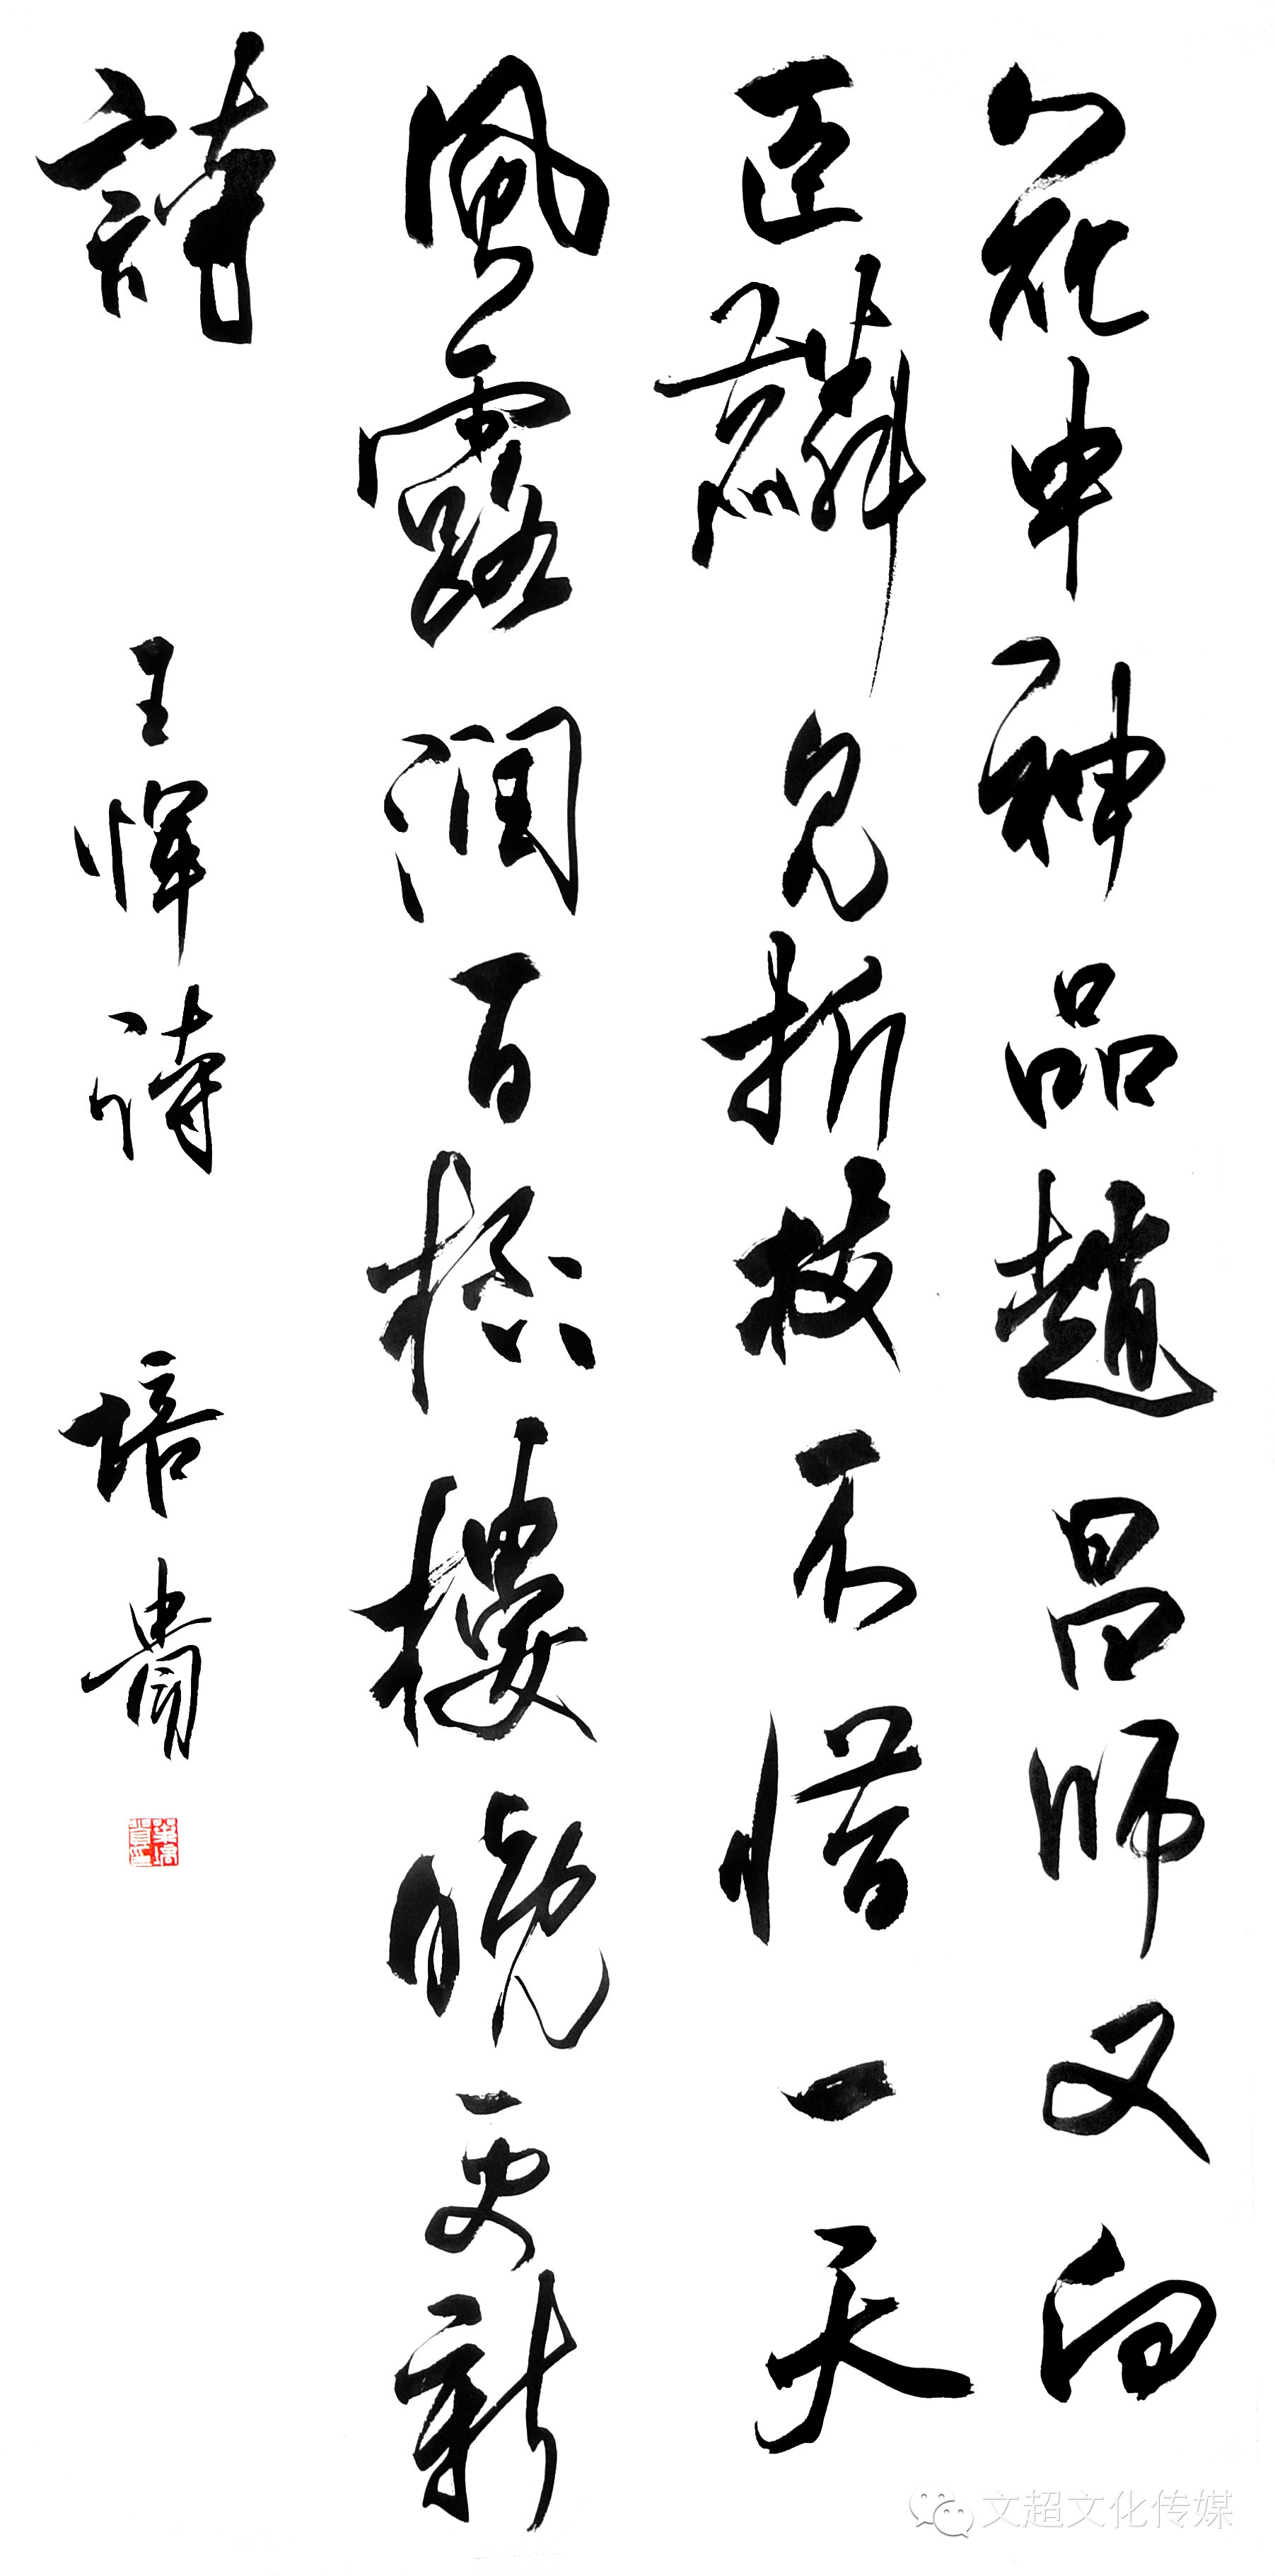 花中神品趙昌師又向
麟見折枝不惜一天
風露潤百樓晚更新
詩
王惲詩 培貴
文超文化传媒